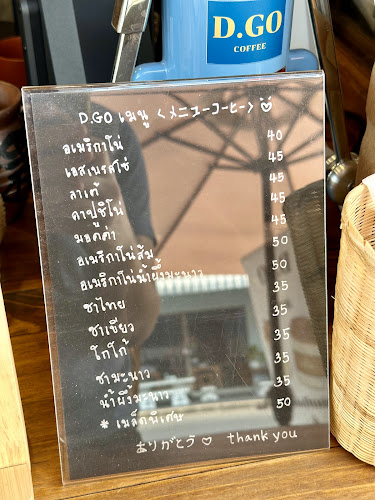 D.GO
COFFEE
D.GO เมนู <メニューコーヒー>
อเมริกาโน่ 40
เอสเพรสโซ่ 45
ลาเต้ 45
คาปูชิโน่ 45
มอคค่า 45
อเมริกาโน่ส้ม 50
อเมริกาโน่น้ำผึ้งมะนาว 50
ชาไทย 35
ชาเขียว 35
โกโก้ 35
ชามะนาว 35
น้ำผึ้งมะนาว 35
* เมล็ดพิเศษ 50
ありがとう ♡ thank you